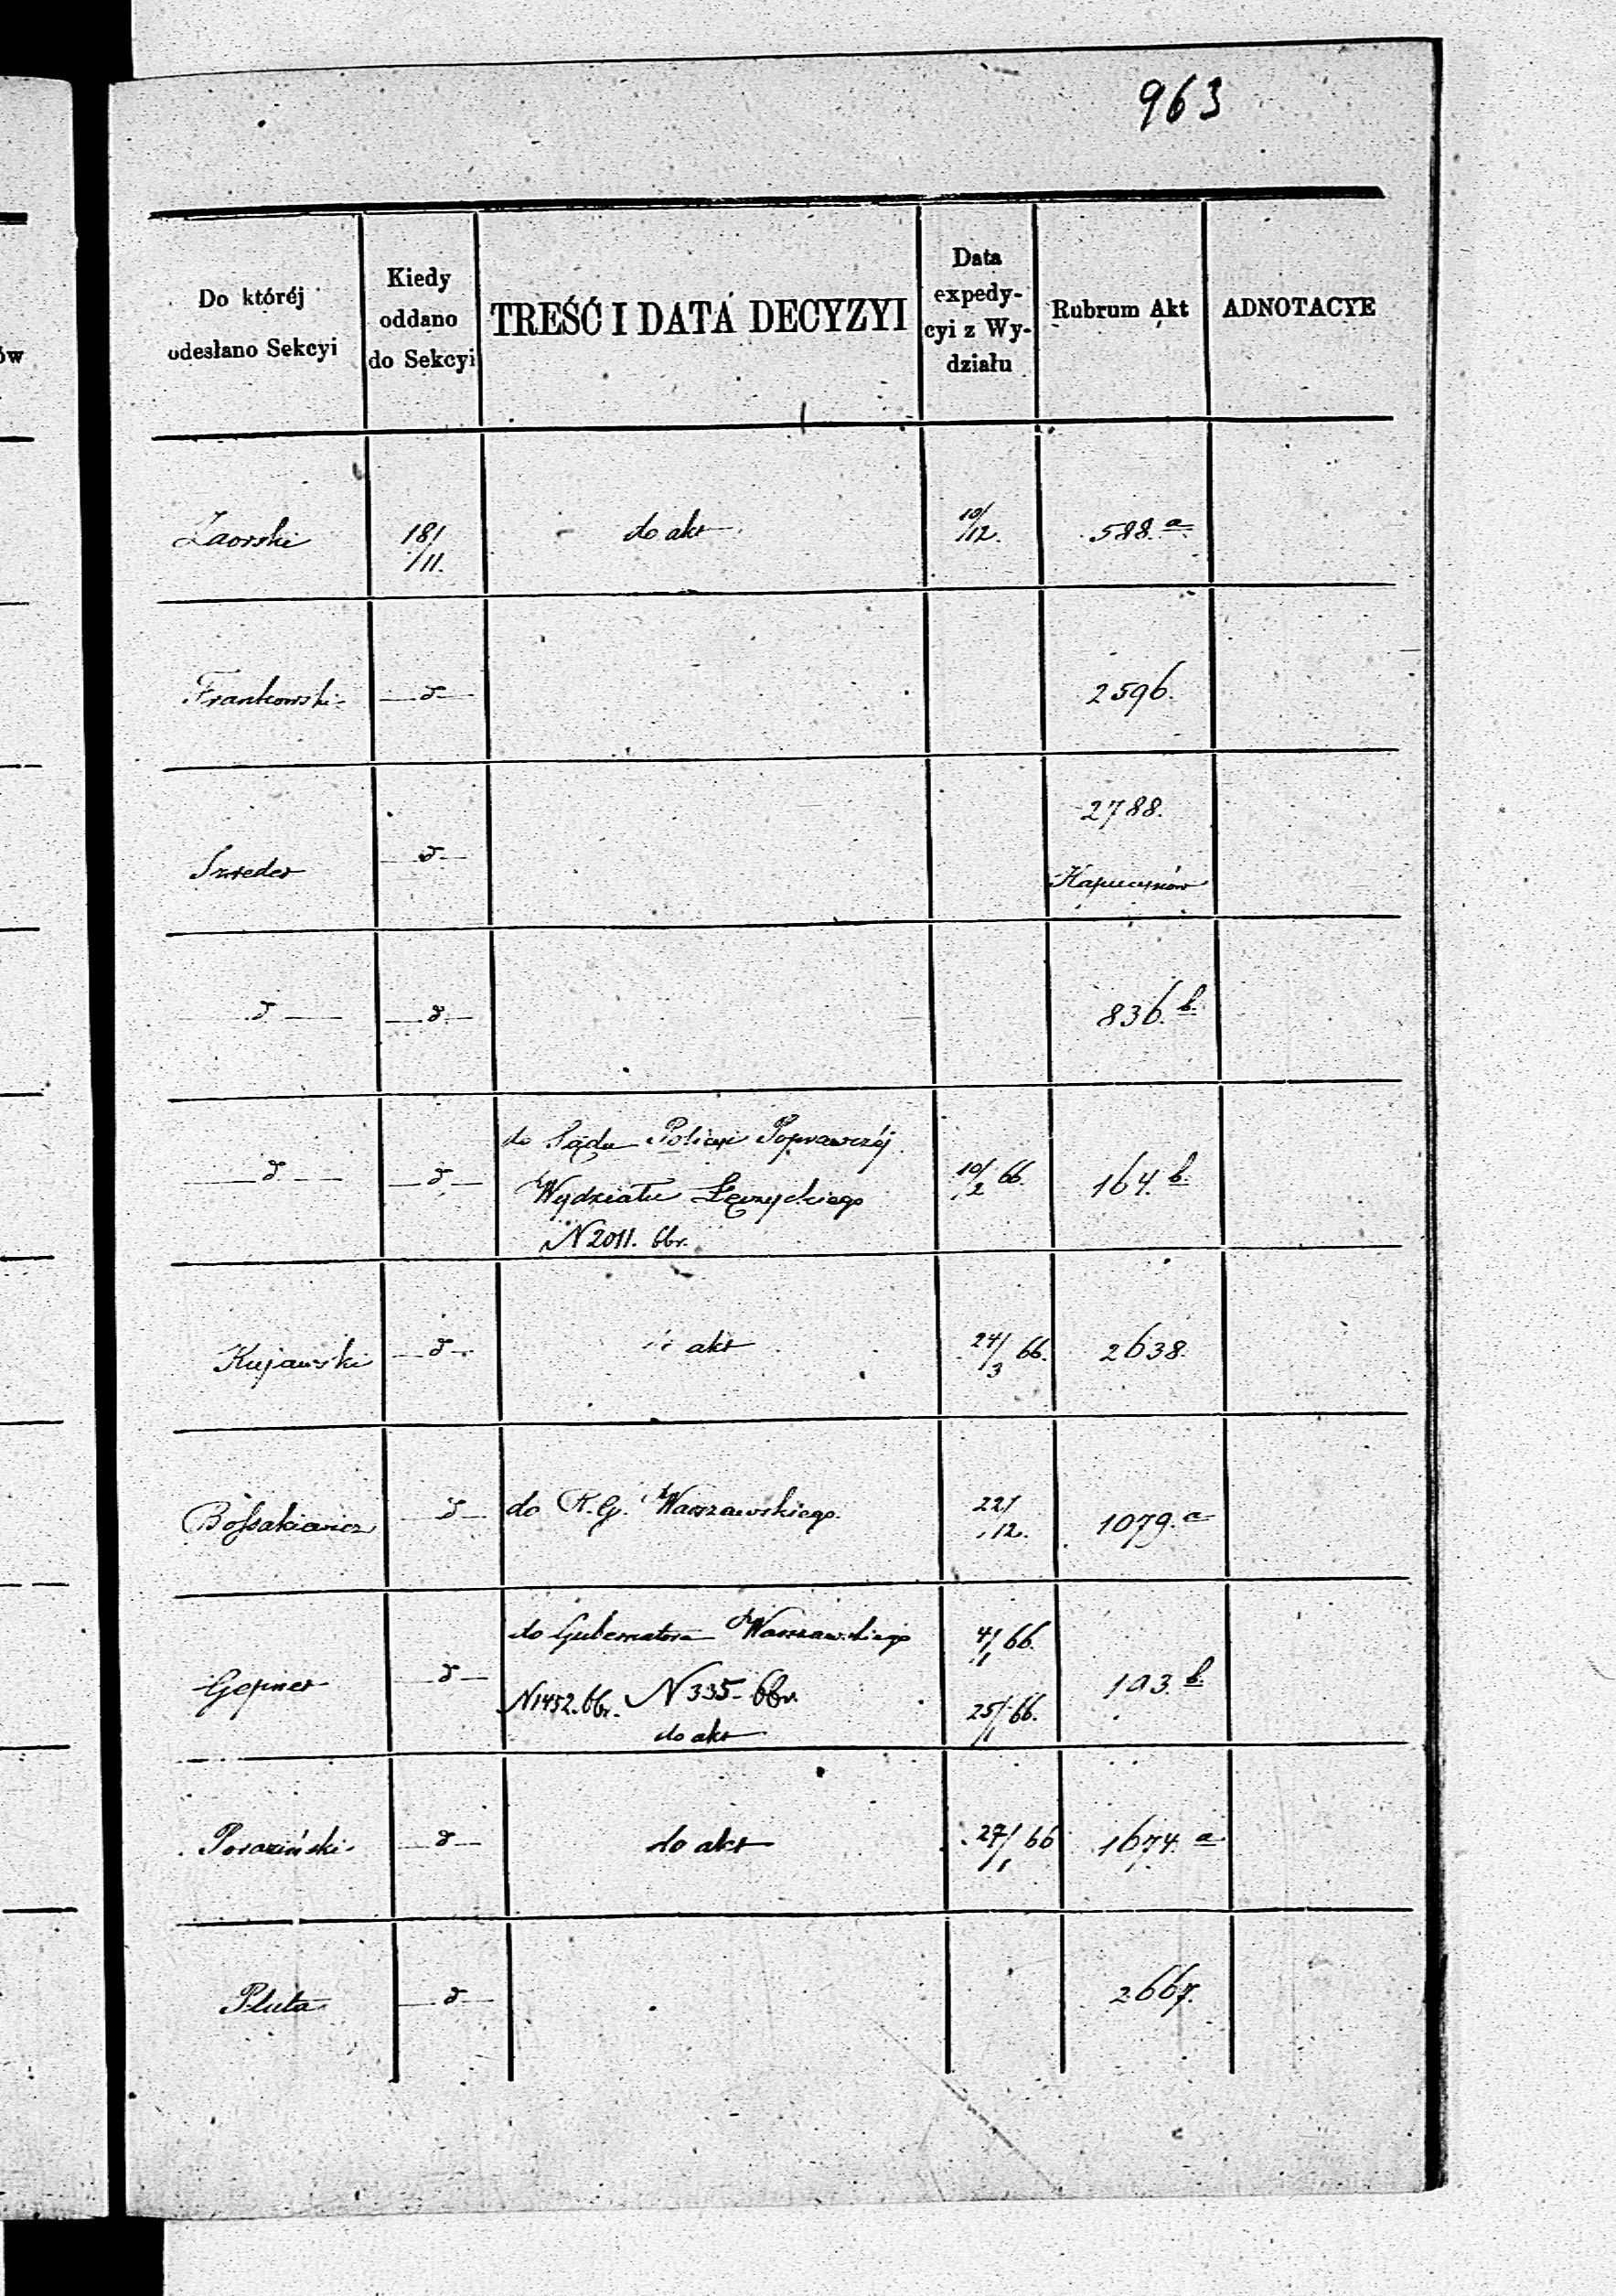 963
Do któréj
odesłano Sekcyi
Kiedy
oddano
do Sekcyi
TREŚĆ I DATA DECYZYI
Data
expedy-
cyi z Wy-
działu
Rubrum Akt
ADNOTACYE
ów
Zaorski 18/11. do akt 10/12. 588.a
Frankowski d 2596.
Szreder d 2788.
Kapucynów
d d 836.b.
do Sądu Policyi Poprawczéj
d d Wydziału Łęczyckiego 10/2 66. 164.b.
N 2011. bbr.
Kujawski d akt 24/3 66. 2638.
Bossakiewicz d do R. G. Warszawskiego. 22/12. 1079.a
do Gubernatora Warszawskiego 4/1 66.
Gepner d N 1452. bbr. N 335 bbr. 25/1 66. 193.b.
do akt
Poraziński d do akt 27/1 66 1674.a
Pluta d 2667.